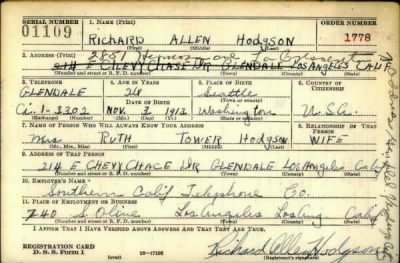 SERIAL NUMBER 1. NAME (Print) ORDER NUMBER
01109 RICHARD ALLEN HODGSON 1778
(First) (Middle) (Last)
2. ADDRESS (Print)
214 E CHEVY CHASE DR GLENDALE LOS ANGELES CALI
(Number and street or R. F. D. number) (Town) (County) (State)
3. TELEPHONE 4. AGE IN YEARS 5. PLACE OF BIRTH 6. COUNTRY OF CITIZENSHIP
GLENDALE Seattle
DATE OF BIRTH (Town or county)
Ci. 1-3302 Nov. 3 1912 Washington U.S.A.
(Exchange) (Number) (Mo.) (Day) (Yr.) (State or country)
7. NAME OF PERSON WHO WILL ALWAYS KNOW YOUR ADDRESS 8. RELATIONSHIP OF THAT PERSON
Mrs RUTH TOWER HODGSON WIFE
(Mr., Mrs., Miss) (First) (Middle) (Last)
9. ADDRESS OF THAT PERSON
214 E CHEVY CHACE DR GLENDALE LOS ANGELES Calif
(Number and street or R. F. D. number) (Town) (County) (State)
10. EMPLOYER'S NAME
Southern Calif Telephone Co.
11. PLACE OF EMPLOYMENT OR BUSINESS
740 S Olive Los Angeles Los Ang Calif
(Number and street or R. F. D. number) (Town) (County) (State)
I AFFIRM THAT I HAVE VERIFIED ABOVE ANSWERS AND THAT THEY ARE TRUE.
REGISTRATION CARD
D. S. S. Form 1 16-17105 Richard Allen Hodgson
(Registrant's signature)